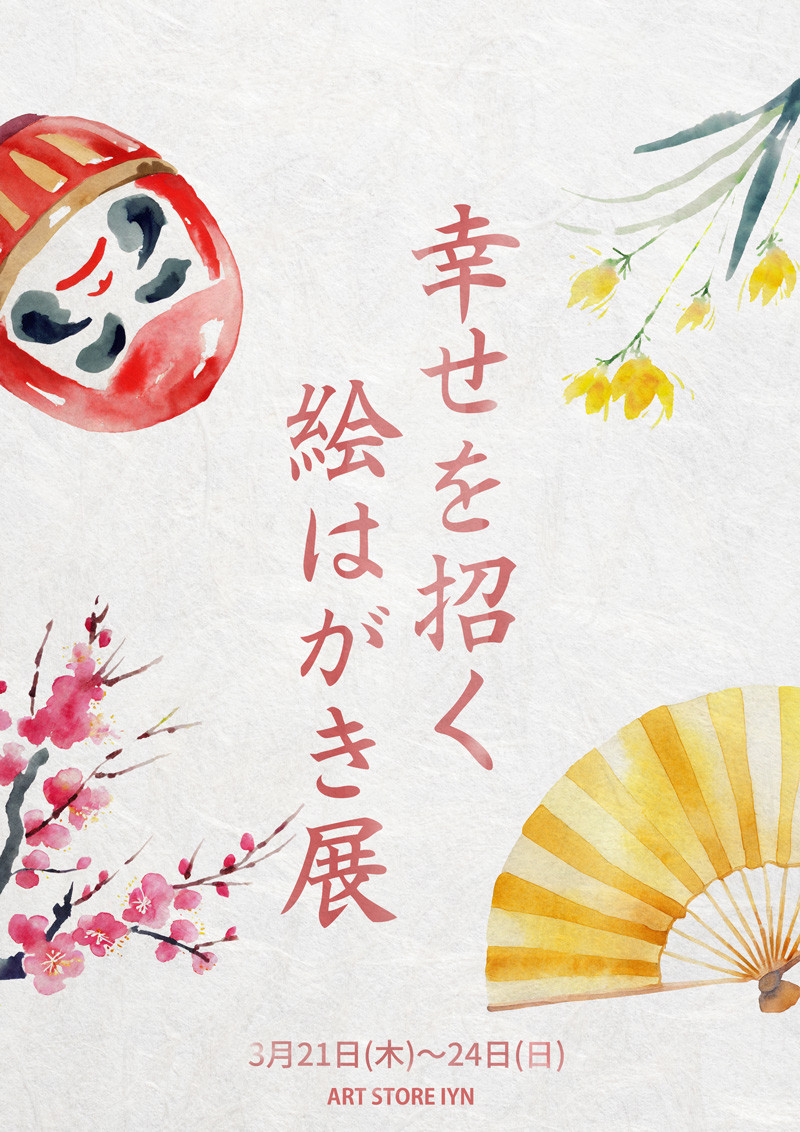 幸せを招く
絵はがき展
3月21日(木)〜24日(日)
ART STORE IYN